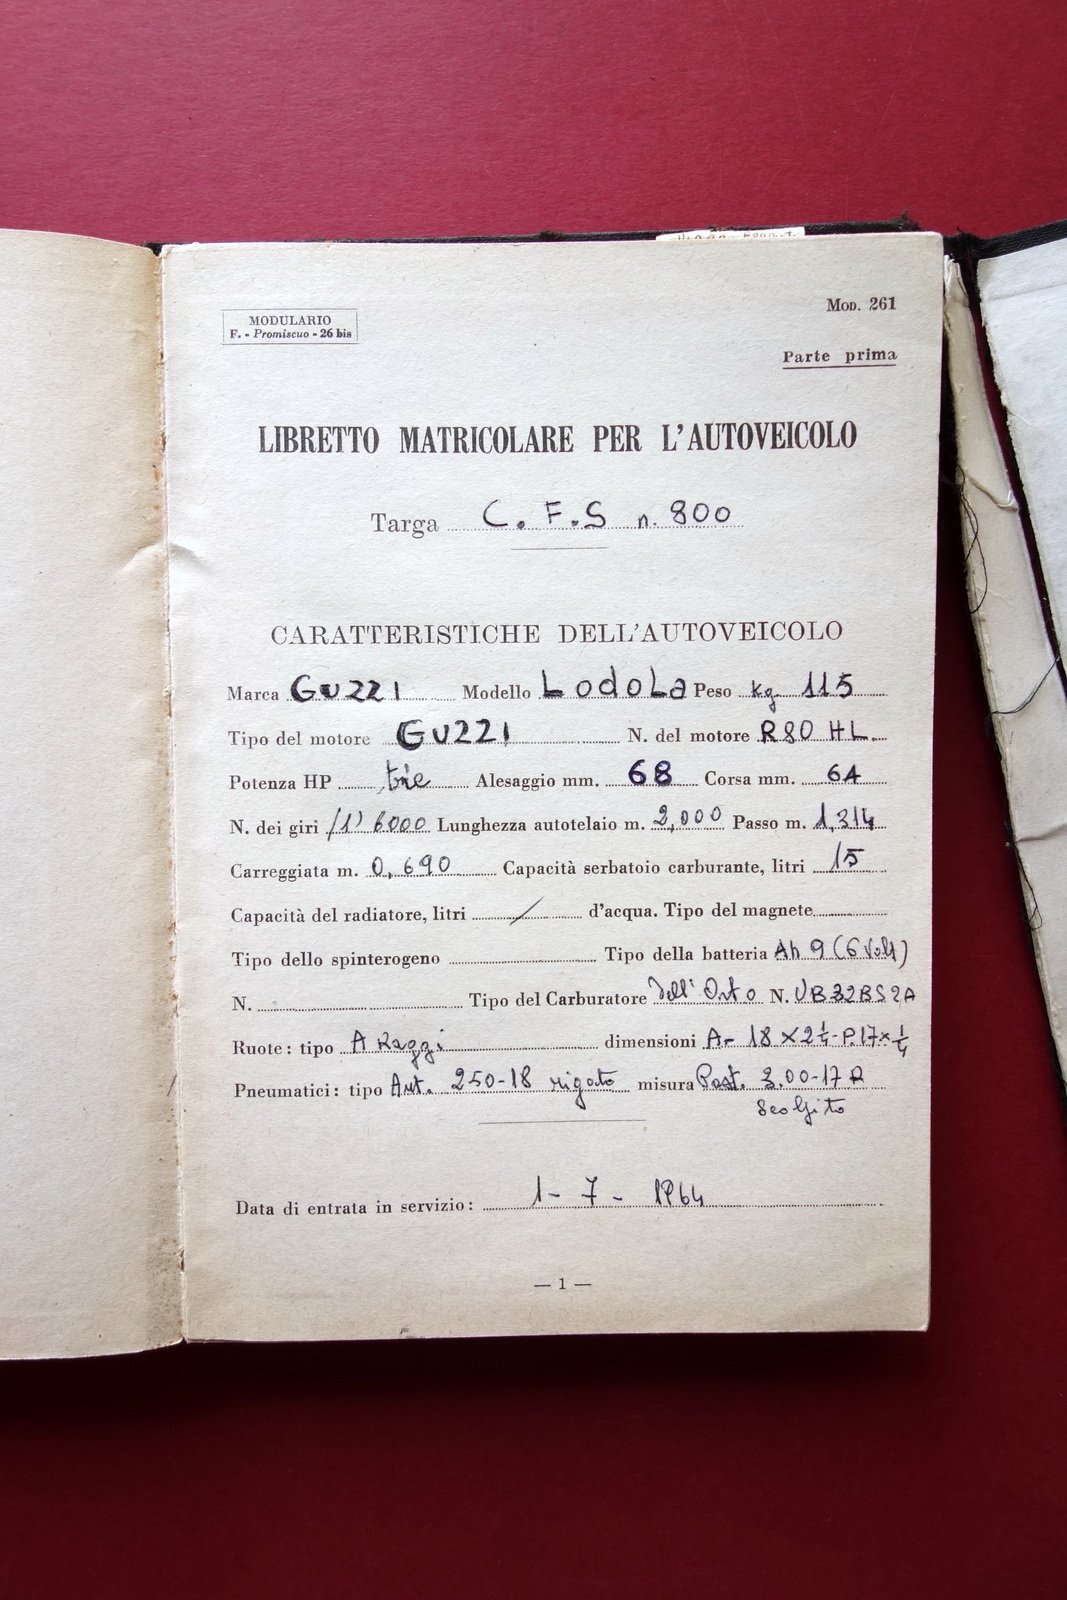 MODULARIO
F. - Promiscuo - 26 bis
MOD. 261
Parte prima
LIBRETTO MATRICOLARE PER L'AUTOVEICOLO
Targa C. F. S n. 800
CARATTERISTICHE DELL'AUTOVEICOLO
Marca GUZZI Modello LodoLa Peso kg. 115
Tipo del motore GUZZI N. del motore R80 HL.
Potenza HP tre Alesaggio mm. 68 Corsa mm. 64
N. dei giri (1') 6000 Lunghezza autotelaio m. 2,000 Passo m. 1,314
Carreggiata m. 0,690 Capacità serbatoio carburante, litri 15
Capacità del radiatore, litri / d'acqua. Tipo del magnete
Tipo dello spinterogeno Tipo della batteria Ah 9 (6 Volt)
N. Tipo del Carburatore Dell'Orto N. UB32BS2A
Ruote: tipo A Raggi dimensioni A- 18 x 2 1/4 - P.17 x 1/4
Pneumatici: tipo Ant. 250-18 rigato misura Post. 3.00-17 R
Scolpito
Data di entrata in servizio: 1 - 7 - 1964
— 1 —